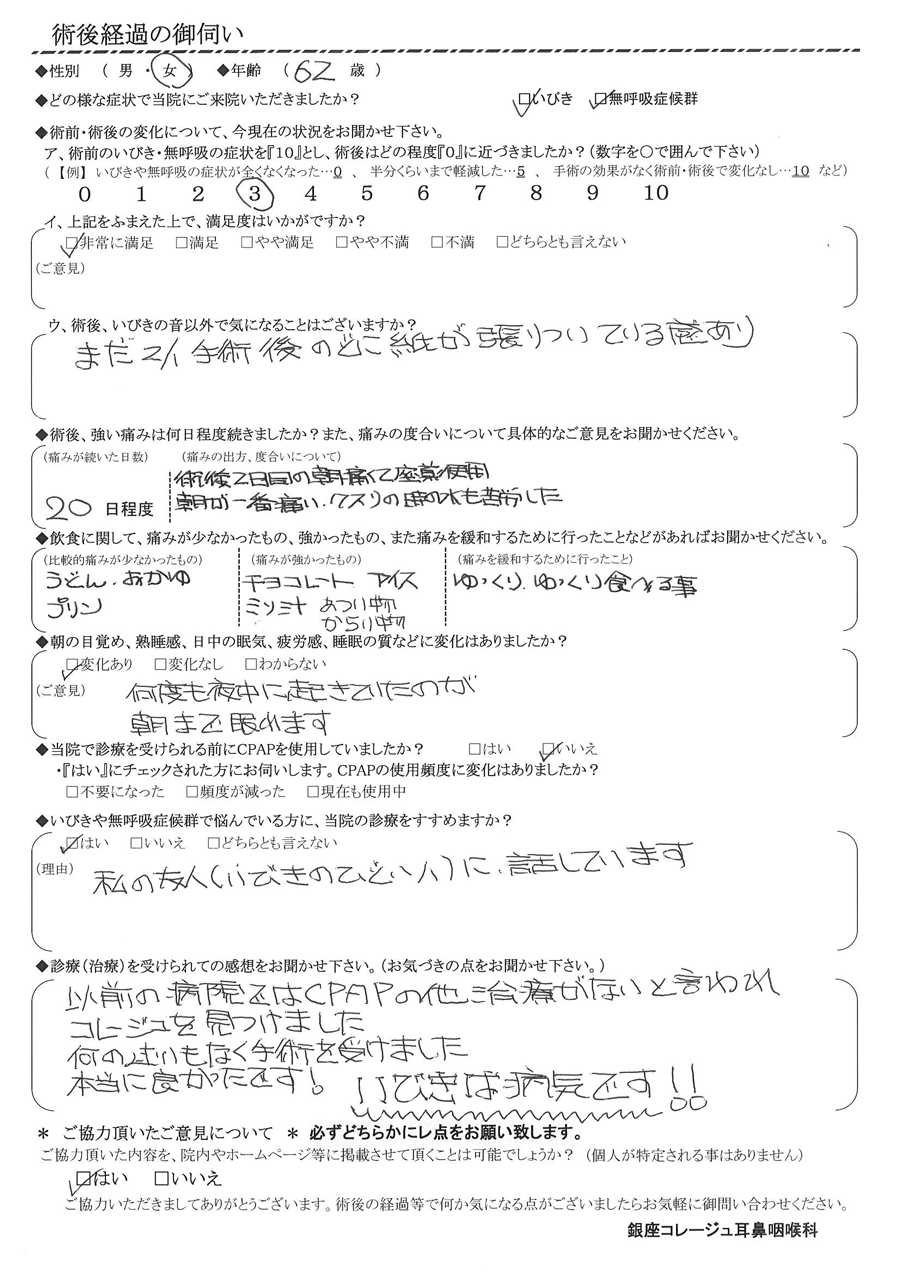 術後経過の御伺い
◆性別 ( 男 ・ 女 ) ◆年齢 ( 62 歳 )
◆どの様な症状で当院にご来院いただきましたか? □いびき □無呼吸症候群
◆術前・術後の変化について、今現在の状況をお聞かせ下さい。
ア、術前のいびき・無呼吸の症状を『10』とし、術後はどの程度『0』に近づきましたか?(数字を○で囲んで下さい)
(【例】 いびきや無呼吸の症状が全くなくなった…0 、 半分くらいまで軽減した…5 、 手術の効果がなく術前・術後で変化なし…10 など)
0 1 2 3 4 5 6 7 8 9 10
イ、上記をふまえた上で、満足度はいかがですか?
□非常に満足 □満足 □やや満足 □やや不満 □不満 □どちらとも言えない
(ご意見)
ウ、術後、いびきの音以外で気になることはございますか?
まだ 2/1 手術後 のどに紙が張りついている感あり
◆術後、強い痛みは何日程度続きましたか?また、痛みの度合いについて具体的なご意見をお聞かせください。
(痛みが続いた日数) (痛みの出方、度合いについて)
術後2日目の朝痛くて座薬使用
20 日程度 朝が一番痛い.クスリの時の水も苦労した
◆飲食に関して、痛みが少なかったもの、強かったもの、また痛みを緩和するために行ったことなどがあればお聞かせください。
(比較的痛みが少なかったもの) (痛みが強かったもの) (痛みを緩和するために行ったこと)
うどん.おかゆ チョコレート アイス ゆっくり.ゆっくり食べる事
プリン ミソミナ あつい物
からい物
◆朝の目覚め、熟睡感、日中の眠気、疲労感、睡眠の質などに変化はありましたか?
□変化あり □変化なし □わからない
(ご意見) 何度も夜中に起きていたのが
朝まで眠れます
◆当院で診療を受けられる前にCPAPを使用していましたか? □はい □いいえ
・『はい』にチェックされた方にお伺いします。CPAPの使用頻度に変化はありましたか?
□不要になった □頻度が減った □現在も使用中
◆いびきや無呼吸症候群で悩んでいる方に、当院の診療をすすめますか?
□はい □いいえ □どちらとも言えない
(理由) 私の友人(いびきのひどい人)に.話しています
◆診療(治療)を受けられての感想をお聞かせ下さい。(お気づきの点をお聞かせ下さい。)
以前の病院ではCPAPの他.治療がないと言われ
コレージュを見つけました
何の迷いもなく手術を受けました
本当に良かったです! いびきは病気です!!
* ご協力頂いたご意見について * 必ずどちらかにレ点をお願い致します。
ご協力頂いた内容を、院内やホームページ等に掲載させて頂くことは可能でしょうか? (個人が特定される事はありません)
□はい □いいえ
ご協力いただきましてありがとうございます。術後の経過等で何か気になる点がございましたらお気軽に御問い合わせください。
銀座コレージュ耳鼻咽喉科